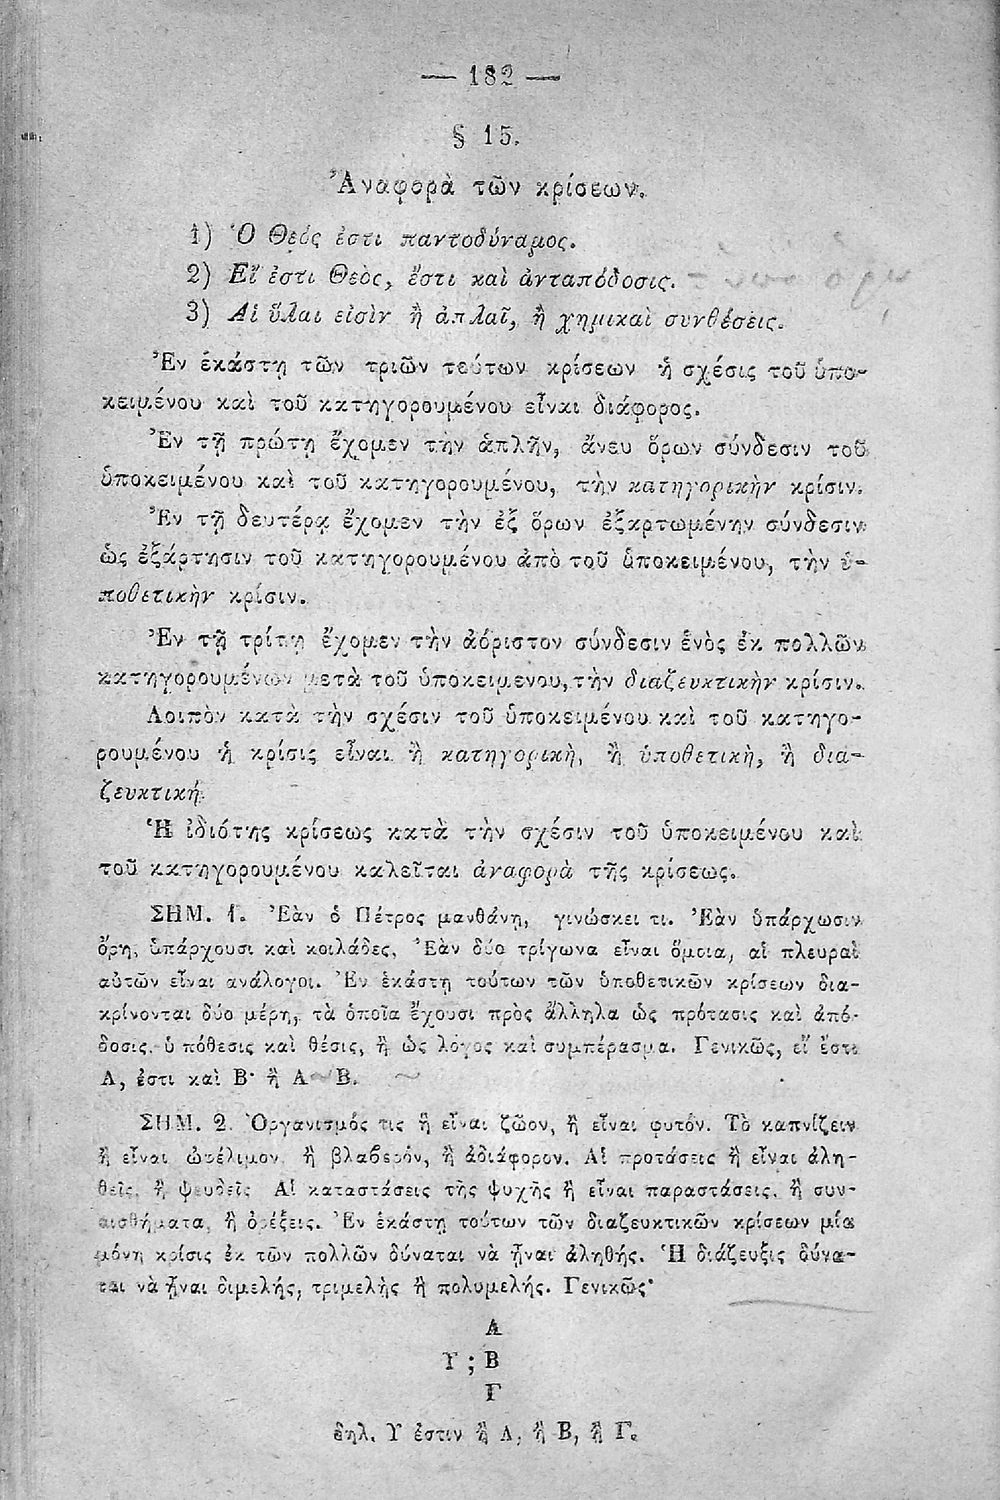 — 182 —
§ 15.
Ἀναφορὰ τῶν κρίσεων.
1) Ὁ Θεός ἐστι παντοδύναμος.
2) Εἴ ἐστι Θεὸς, ἔστι καὶ ἀνταπόδοσις.
3) Αἱ ὕλαι εἰσὶν ἢ ἁπλαῖ, ἢ χημικαὶ συνθέσεις.
Ἐν ἑκάστῃ τῶν τριῶν τούτων κρίσεων ἡ σχέσις τοῦ ὑπο-
κειμένου καὶ τοῦ κατηγορουμένου εἶναι διάφορος.
Ἐν τῇ πρώτῃ ἔχομεν τὴν ἁπλῆν, ἄνευ ὅρων σύνδεσιν τοῦ
ὑποκειμένου καὶ τοῦ κατηγορουμένου, τὴν κατηγορικὴν κρίσιν.
Ἐν τῇ δευτέρᾳ ἔχομεν τὴν ἐξ ὅρων ἐξαρτωμένην σύνδεσιν
ὡς ἐξάρτησιν τοῦ κατηγορουμένου ἀπὸ τοῦ ὑποκειμένου, τὴν ὑ-
ποθετικὴν κρίσιν.
Ἐν τῇ τρίτῃ ἔχομεν τὴν ἀόριστον σύνδεσιν ἑνὸς ἐκ πολλῶν
κατηγορουμένων μετὰ τοῦ ὑποκειμενου, τὴν διαζευκτικὴν κρίσιν.
Λοιπὸν κατὰ τὴν σχέσιν τοῦ ὑποκειμένου καὶ τοῦ κατηγο-
ρουμένου ἡ κρίσις εἶναι ἢ κατηγορικὴ, ἢ ὑποθετικὴ, ἢ δια-
ζευκτική.
Ἡ ἰδιότης κρίσεως κατὰ τὴν σχέσιν τοῦ ὑποκειμένου καὶ
τοῦ κατηγορουμένου καλεῖται ἀναφορὰ τῆς κρίσεως.
ΣΗΜ. 1. Ἐὰν ὁ Πέτρος μανθάνῃ, γινώσκει τι. Ἐὰν ὑπάρχωσιν
ὄρη, ὑπάρχουσι καὶ κοιλάδες. Ἐὰν δύο τρίγωνα εἶναι ὅμοια, αἱ πλευραὶ
αὐτῶν εἶναι ανάλογοι. Ἐν ἑκάστῃ τούτων τῶν ὑποθετικῶν κρίσεων δια-
κρίνονται δύο μέρη, τὰ ὁποῖα ἔχουσι πρὸς ἄλληλα ὡς πρότασις καὶ ἀπό-
δοσις, ὑπόθεσις καὶ θέσις, ἢ ὡς λόγος καὶ συμπέρασμα. Γενικῶς, εἴ ἐστι
Α, ἐστι καὶ Β· ἢ Α ~ Β.
ΣΗΜ. 2. Ὀργανισμός τις ἢ εἶναι ζῶον, ἢ εἶναι φυτόν. Τὸ καπνίζειν
ἢ εἶναι ὠφέλιμον, ἢ βλαβερόν, ἢ ἀδιάφορον. Αἱ προτάσεις ἢ εἶναι ἀλη-
θεῖς, ἢ ψευδεῖς Αἱ καταστάσεις τῆς ψυχῆς ἢ εἶναι παραστάσεις, ἢ συν-
αισθήματα, ἢ ὀρέξεις. Ἐν ἑκάστῃ τούτων τῶν διαζευκτικῶν κρίσεων μία
μόνη κρίσις ἐκ τῶν πολλῶν δύναται νὰ ᾖναι ἀληθής. Ἡ διάζευξις δύνα-
ται νὰ ᾖναι διμελής, τριμελὴς ἢ πολυμελής. Γενικῶς·
Α
Υ ; Β
Γ
δηλ. Υ ἐστιν ἢ Α, ἢ Β, ἢ Γ.